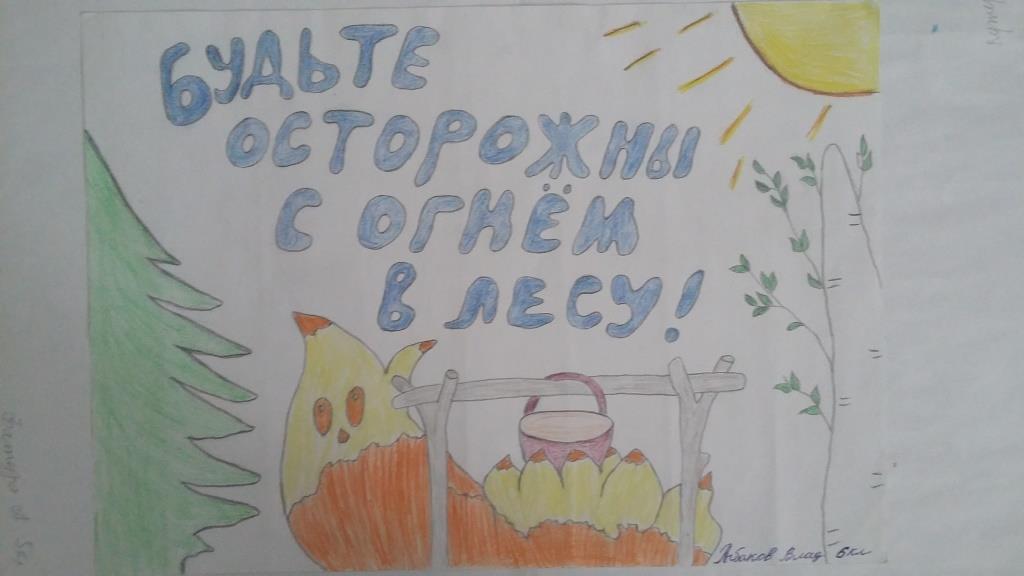 БУДЬТЕ
ОСТОРОЖНЫ
С ОГНЁМ
В ЛЕСУ!
Рыбаков Влад 6кл